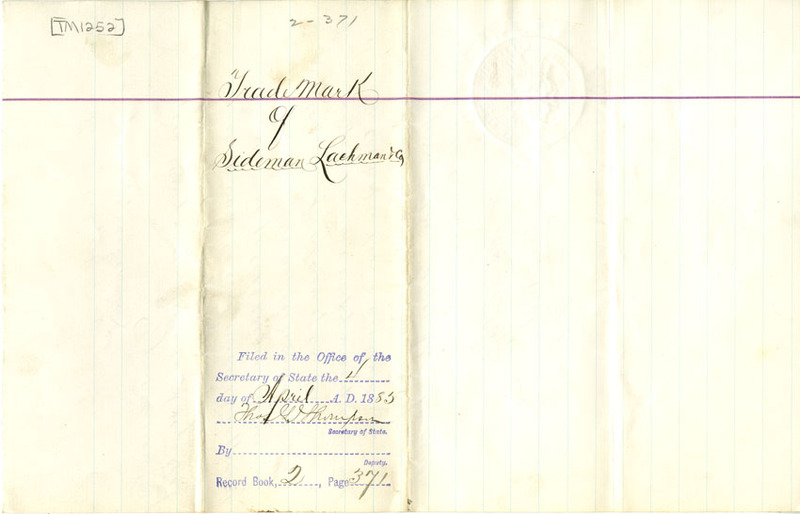 [TM1252]
2-371
Trade Mark
of
Sideman Lachman & Co
Filed in the Office of the
Secretary of State the 1
day of April A. D. 1885
Thos L Thompson
Secretary of State.
By
Deputy.
Record Book, 2, Page 371